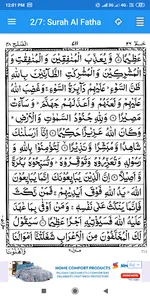 12:01 PM
2/7: Surah Al Fatha
عَظِيْمًا ۙ وَّيُعَذِّبَ الْمُنٰفِقِيْنَ وَالْمُنٰفِقٰتِ وَ
الْمُشْرِكِيْنَ وَالْمُشْرِكٰتِ الظَّآنِّيْنَ بِاللّٰهِ
ظَنَّ السَّوْءِ عَلَيْهِمْ دَآئِرَةُ السَّوْءِ وَغَضِبَ اللّٰهُ
عَلَيْهِمْ وَلَعَنَهُمْ وَاَعَدَّ لَهُمْ جَهَنَّمَ وَسَآءَتْ
مَصِيْرًا وَلِلّٰهِ جُنُوْدُ السَّمٰوٰتِ وَالْاَرْضِ
وَكَانَ اللّٰهُ عَزِيْزًا حَكِيْمًا اِنَّآ اَرْسَلْنٰكَ
شَاهِدًا وَّمُبَشِّرًا وَّنَذِيْرًا لِّتُؤْمِنُوْا بِاللّٰهِ
وَرَسُوْلِهٖ وَتُعَزِّرُوْهُ وَتُوَقِّرُوْهُ وَتُسَبِّحُوْهُ بُكْرَةً
وَّاَصِيْلًا اِنَّ الَّذِيْنَ يُبَايِعُوْنَكَ اِنَّمَا يُبَايِعُوْنَ
اللّٰهَ يَدُ اللّٰهِ فَوْقَ اَيْدِيْهِمْ فَمَنْ نَّكَثَ
فَاِنَّمَا يَنْكُثُ عَلٰى نَفْسِهٖ وَمَنْ اَوْفٰى بِمَا عٰهَدَ
عَلَيْهُ اللّٰهَ فَسَيُؤْتِيْهِ اَجْرًا عَظِيْمًا سَيَقُوْلُ
لَكَ الْمُخَلَّفُوْنَ مِنَ الْاَعْرَابِ شَغَلَتْنَآ اَمْوَالُنَا
وَاَهْلُوْنَا
HOME COMFORT PRODUCTS